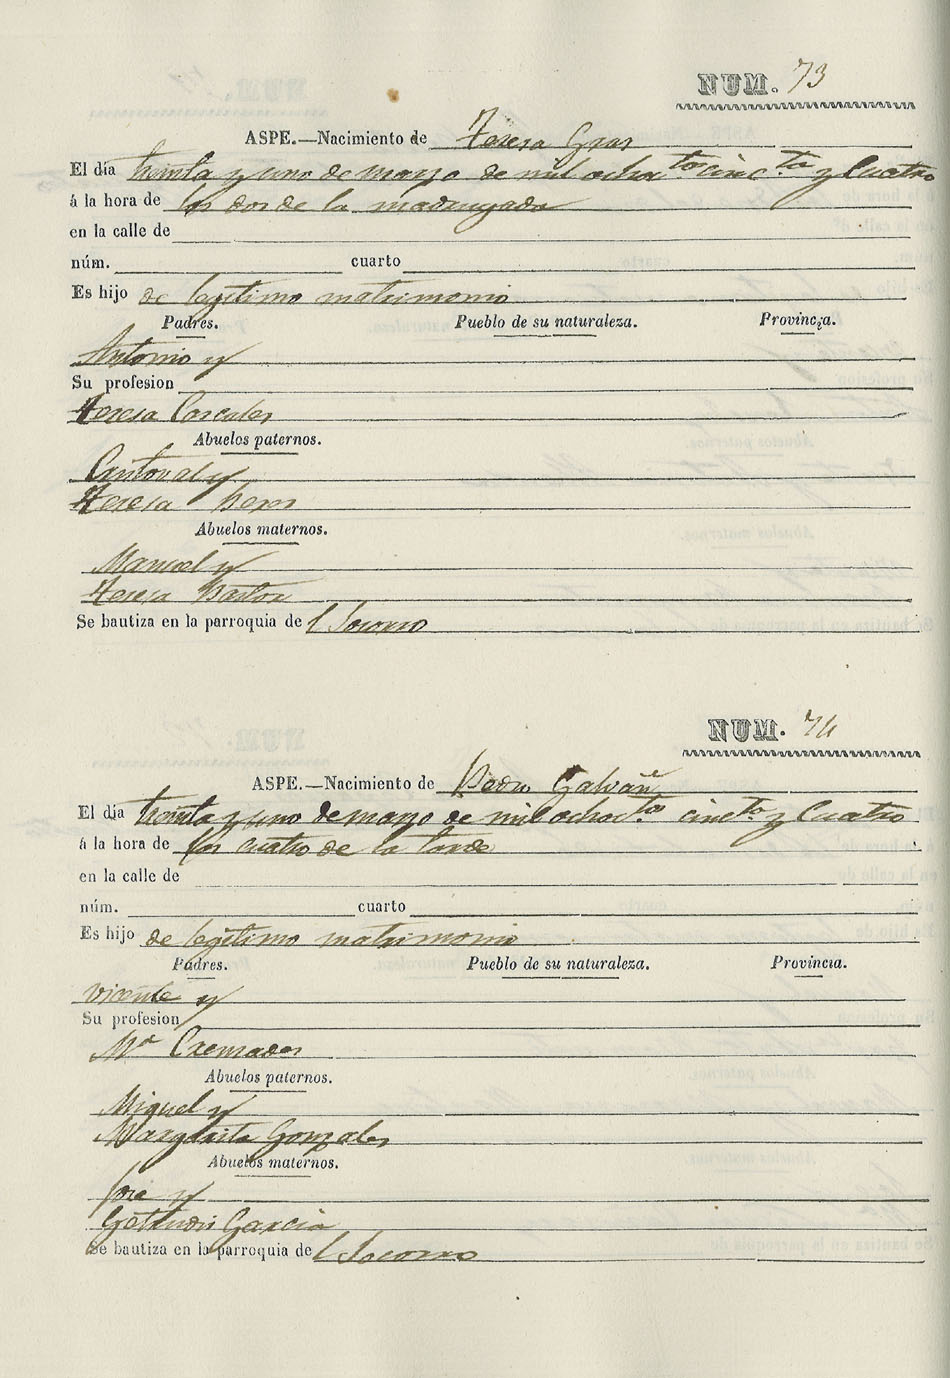 NUM. 73
ASPE.—Nacimiento de Teresa Gras
El día treinta y uno de marzo de mil ochoc.tos cinc.ta y Cuatro
á la hora de las dos de la madrugada
en la calle de
núm. cuarto
Es hijo de legitimo matrimonio
Padres. Pueblo de su naturaleza. Provincia.
Antonio y
Su profesion
Teresa
Abuelos paternos.
Cristoval y
Teresa
Abuelos maternos.
Manuel y
Teresa Pastor
Se bautiza en la parroquia del Socorro
NUM. 74
ASPE.—Nacimiento de Pedro Galvañ
El día treinta y uno de marzo de mil ochoc.tos cinc.ta y Cuatro
á la hora de las cuatro de la tarde
en la calle de
núm. cuarto
Es hijo de legitimo matrimonio
Padres. Pueblo de su naturaleza. Provincia.
Vicente y
Su profesion
Mª Cremades
Abuelos paternos.
Miguel y
Margarita Gonzales
Abuelos maternos.
Jose y
Getrudis Garcia
Se bautiza en la parroquia del Socorro